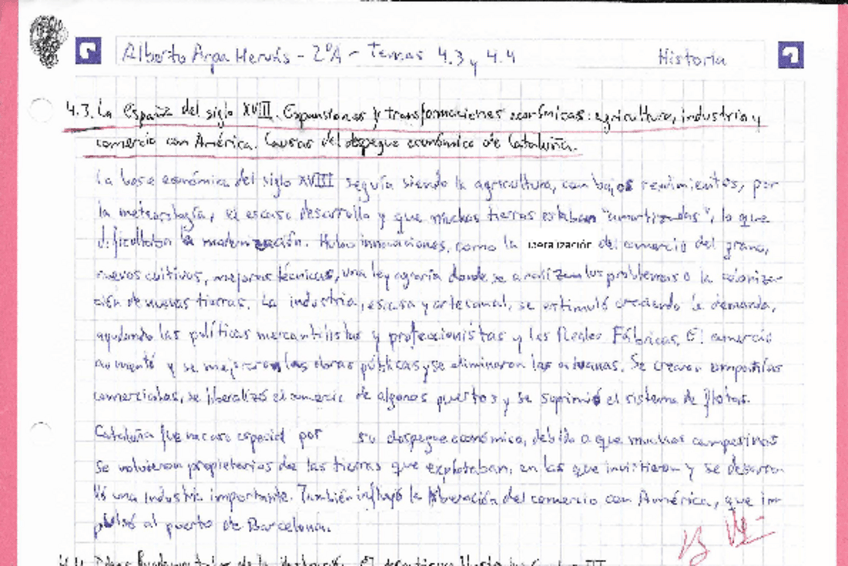 Alberto Arpa Hervás - 2ºA - Temas 4.3 y 4.4 Historia
4.3. La España del siglo XVIII. Expansiones y transformaciones económicas: agricultura, industria y
comercio con América. Causas del despegue económico de Cataluña.
La base económica del siglo XVIII seguía siendo la agricultura, con bajos rendimientos, por
la meteorología, el escaso desarrollo y que muchas tierras estaban "amortizadas", lo que
dificultaba la modernización. Hubo innovaciones, como la liberalización del comercio del grano,
nuevos cultivos, mejoras técnicas, una ley agraria donde se analizan los problemas o la coloniza-
ción de nuevas tierras. La industria, escasa y artesanal, se estimuló creciendo la demanda,
ayudando las políticas mercantilistas y proteccionistas y las Reales Fábricas. El comercio
aumentó y se mejoraron las obras públicas y se eliminaron las aduanas. Se crearon compañías
comerciales, se liberalizó el comercio de algunos puertos y se suprimió el sistema de flotas.
Cataluña fue un caso especial por su despegue económico, debido a que muchos campesinos
se volvieron propietarios de las tierras que explotaban, en las que invirtieron y se desarro
lló una industria importante. También influyó la liberación del comercio con América, que im-
pulsó al puerto de Barcelona.